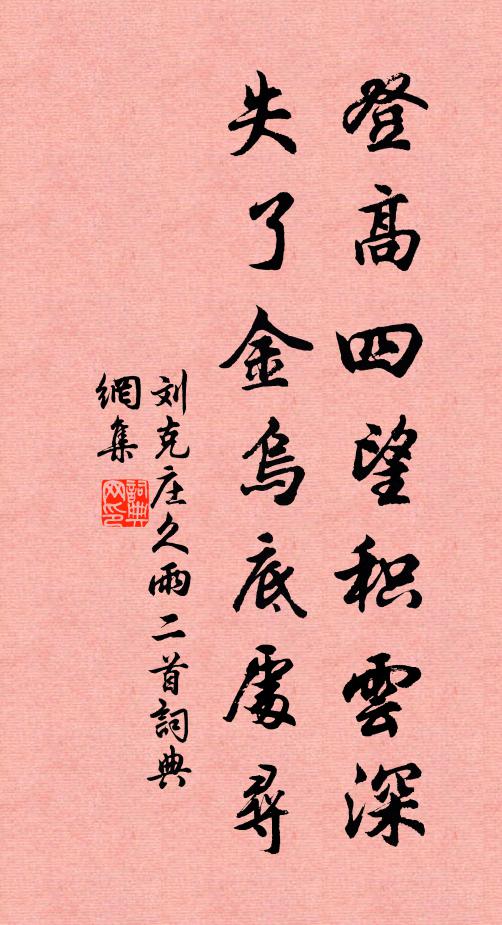 登高四望积雲深
失了金烏底處尋
刘克庄久雨二首詞典
網集
詞典
网印